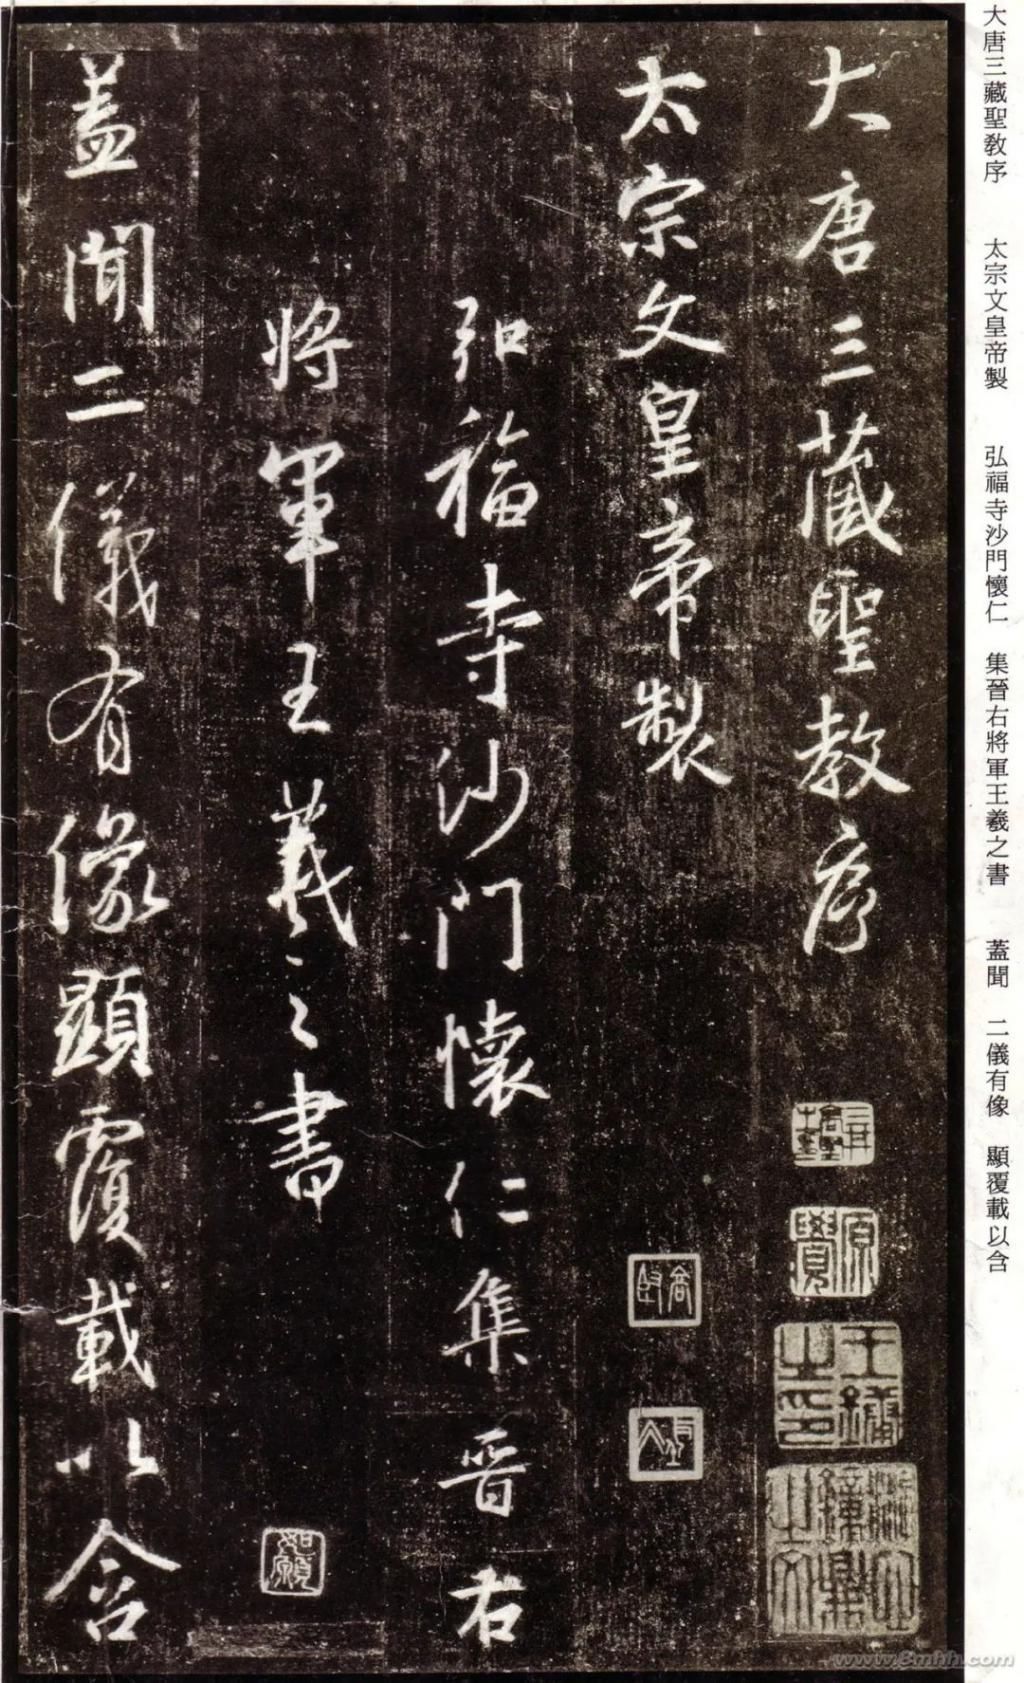 大唐三藏聖教序　太宗文皇帝製　弘福寺沙門懷仁　集晉右將軍王羲之書　蓋聞　二儀有像　顯覆載以含
大唐三藏聖教序
太宗文皇帝製
弘福寺沙門懷仁集晉右
將軍王羲之書
蓋聞二儀有像顯覆載以含
原
如願
www.8mhh.com